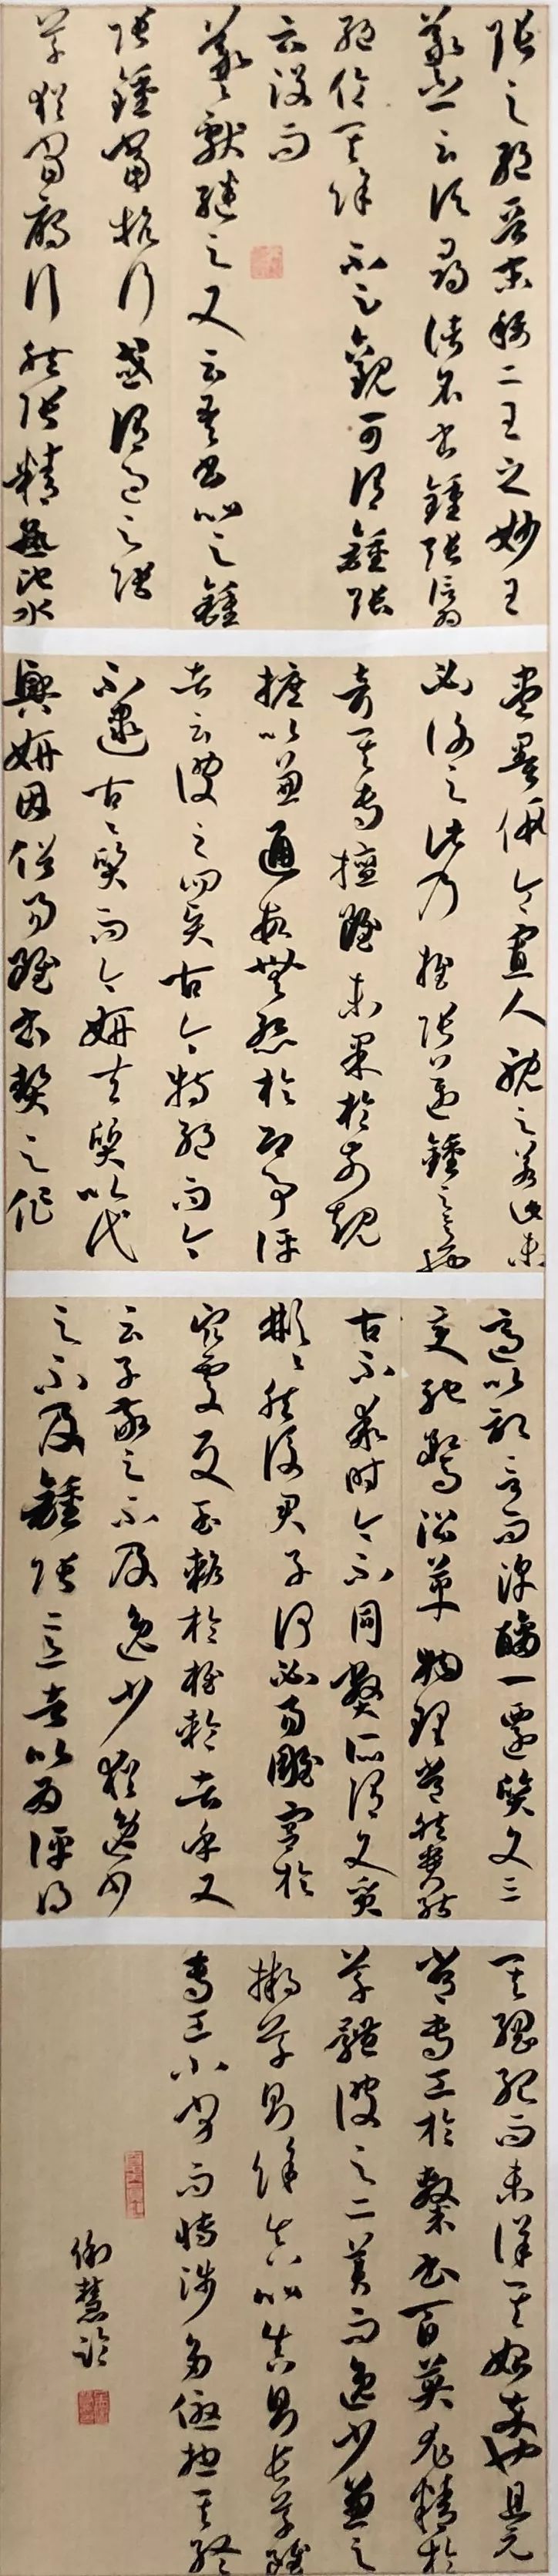 張之絕晉末稱二王之妙王
羲之云頃尋諸名書鍾張信為
絕倫其餘不足觀可謂鍾張
云沒而
羲獻繼之又云吾書比之鍾
張鍾當抗行或謂過之張
草猶當雁行然張精熟池水
盡墨假令寡人耽之若此未
必謝之此乃推張邁鍾之意也
考其專擅雖未果於前規
摭以兼通故無慚於即事評
者云彼之四賢古今特絕而今
不逮古古質而今妍夫質以代
興妍因俗易雖書契之作
適以記言而淳醨一遷質文三
變馳騖沿革物理常然貴能
古不乖時今不同弊所謂文質
彬彬然後君子何必易雕宮於
穴處反玉輅於椎輪者乎又
云子敬之不及逸少猶逸少
之不及鍾張意者以為評得
其綱紀而未詳其始卒也且元
常專工於隸書百英尤精於
草體彼之二美而逸少兼之
擬草則餘真比真則長草雖
專工小劣而博涉多優總其終
慧臨